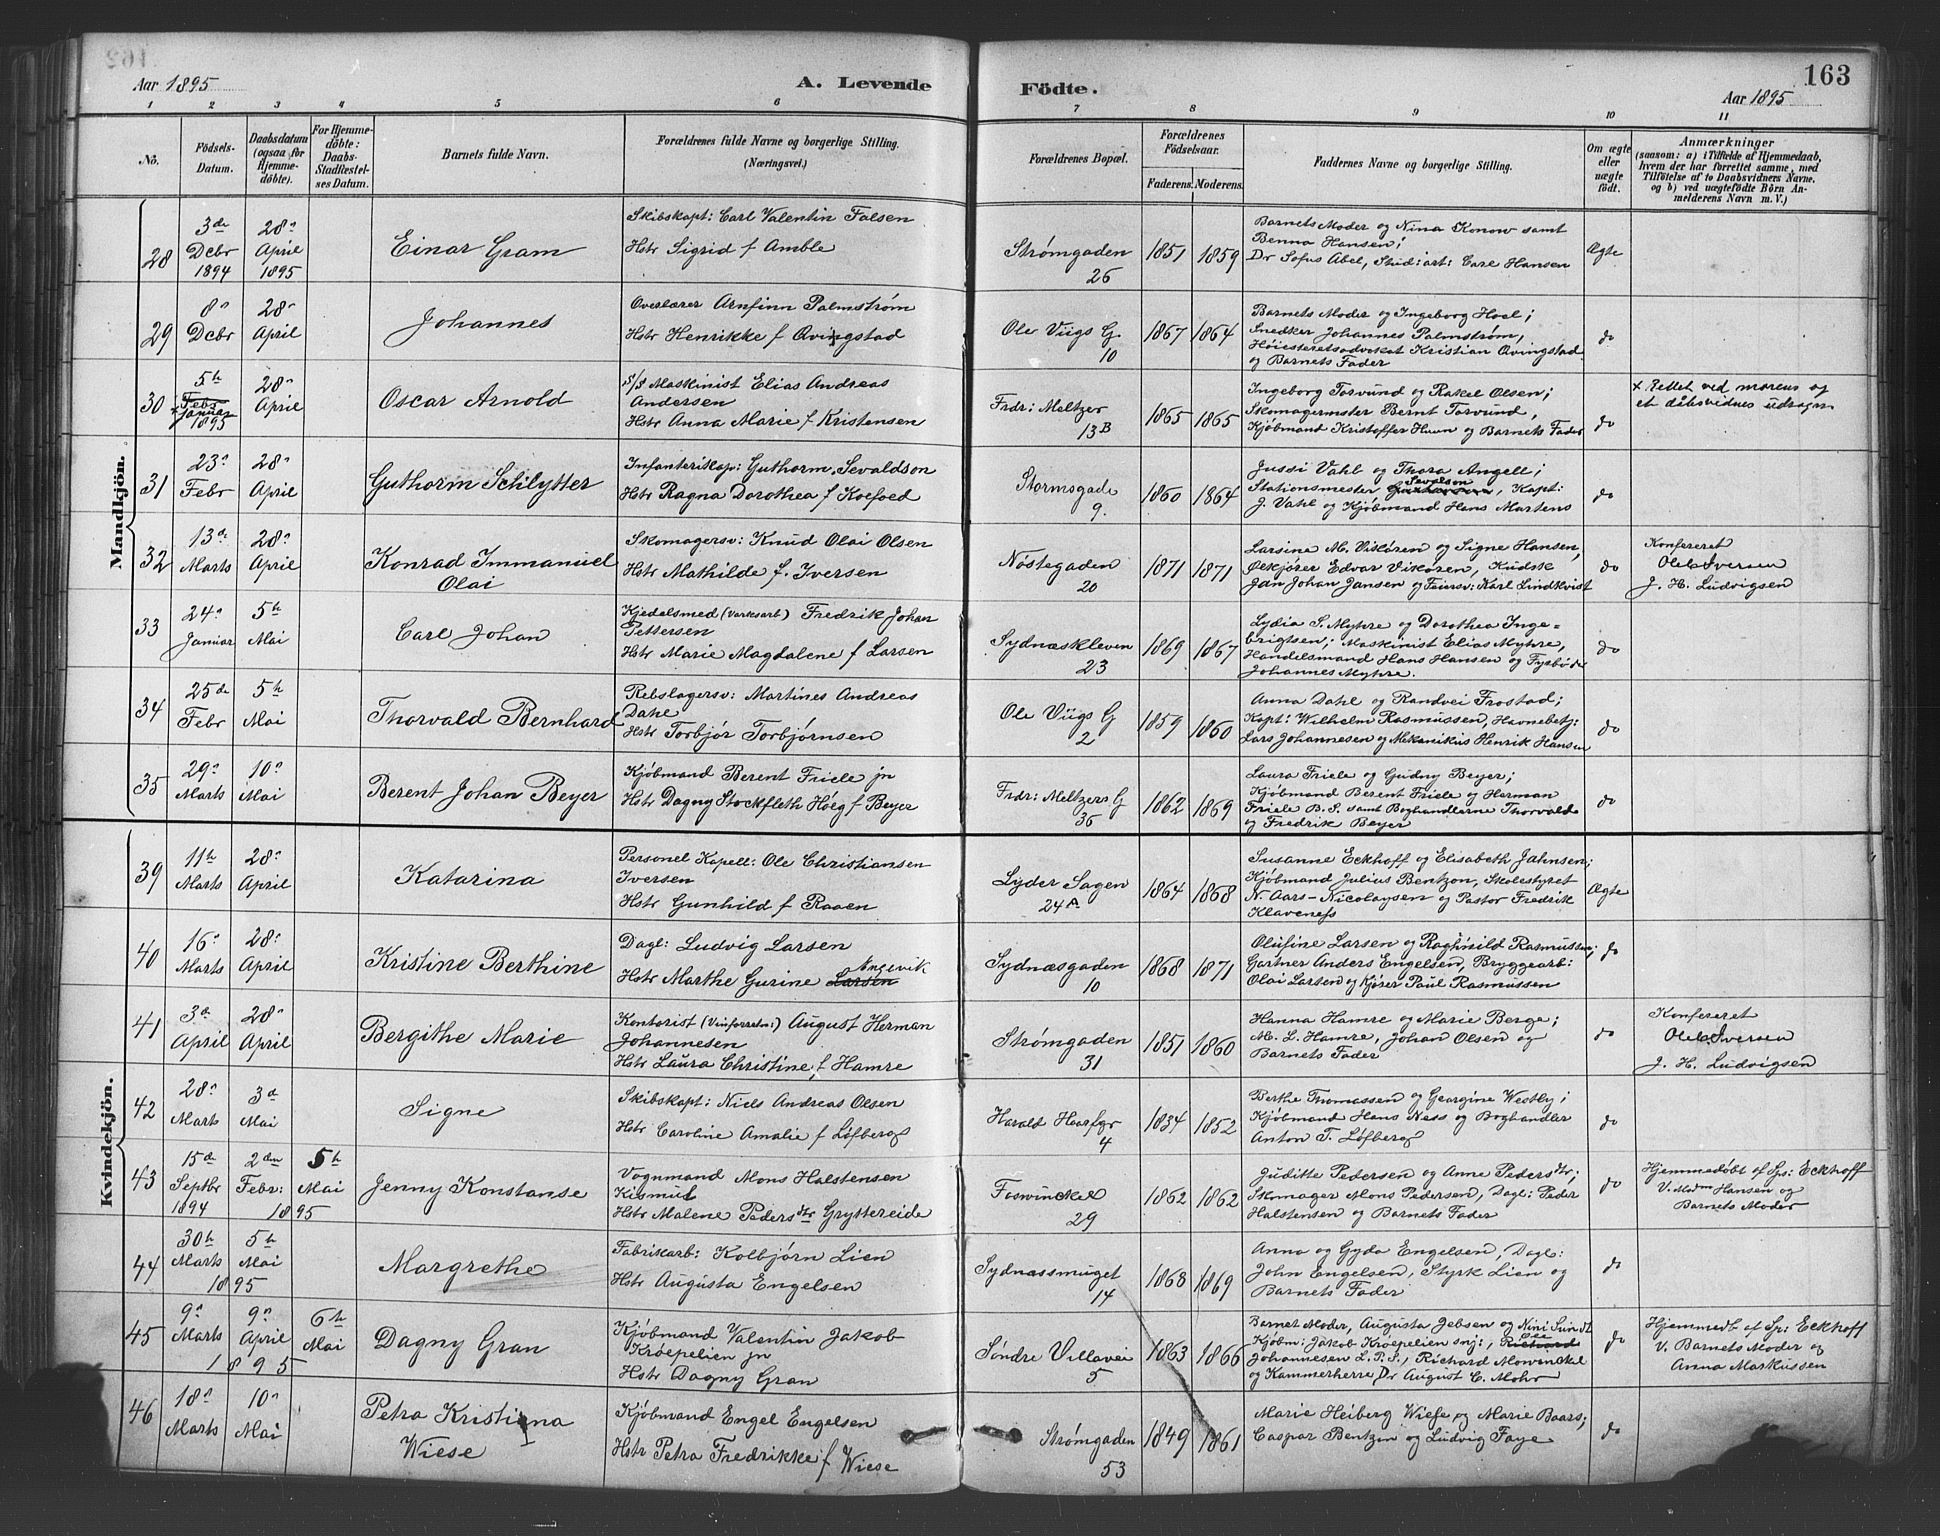 Aar 1895
A. Levende
Födte.
163
Aar 1895
1 2 3 4 5 6 7 8 9 10 11
No.
Födsels-Datum.
Daabsdatum (ogsaa for Hjemme-döbte).
For Hjemme-döbte: Daabs-Stadfæstel-ses Datum.
Barnets fulde Navn.
Forældrenes fulde Navne og borgerlige Stilling. (Næringsvei.)
Forældrenes Bopæl.
Forældrenes Födselsaar.
Faderens. Moderens.
Faddernes Navne og borgerlige Stilling.
Om ægte eller uægte födt.
Anmærkninger
(saasom: a) i Tilfælde af Hjemmedaab,
hvem der har forrettet samme, med
Tilföielse af to Daabsvidners Navne,
og b) ved uægtefödte Börn An-
melderens Navn m. V.)
Mandkjön.
28
3de Dcbr 1894
28n April 1895
Einar Gram
Skibskapt: Carl Valentin Falsen
Hstr Sigrid f Amble
Strømgaden 26
1851 1859
Barnets Moder og Nina Konow samt
Benna Hansen;
Dr Sofus Abel, Stud: art: Carl Hansen
Ægte
29
8n Dcbr
28n April
Johannes
Overlærer Arnfinn Palmstrøm
Hstr Henrikke f Qvingstad
Ole Viigs G. 10
1867 1864
Barnets Moder og Ingeborg Hoel;
Snedker Johannes Palmstrøm,
Høiesteretsadvokat Kristian Qvingstad
og Barnets Fader
do
30
5th Febr x januar 1895
28n April
Oscar Arnold
S/S Maskinist Elias Andreas
Andersen
Hstr Anna Marie f Kristensen
Frdr: Meltzer 13B
1865 1865
Ingeborg Torvund og Rakel Olsen;
Skomagermster Bernt Torvund,
Kjøbmand Kristoffer Huun og Barnets Fader
do
x Rettet ved morens og
et dåbsvidnes udsagn
31
23n Febr
28n April
Guthorm Schlytter
Infanterikap: Guthorm Sevaldson
Hstr Ragna Dorothea f Koefoed
Stormsgade 9.
1860 1864
Jussi Vahl og Thora Angell;
Stationsmester Sevalson, Kapt:
J. Vahl og Kjøbmand Hans Martens
do
32
13de Marts
28n April
Konrad Immanuel
Olai
Skomagersv: Knud Olai Olsen
Hstr Mathilde f. Iversen
Nöstegaden 20
1871 1871
Larsine M. Vikøren og Signe Hansen,
Øekjører Edvar Vikøren, Kudsk
Jan Johan Jansen og Feiersv: Karl Lindkvist
do
Konfereret
Ole Iversen
J. H. Ludvigsen
33
24n Januar
5th Mai
Carl Johan
Kjedelsmed (Værksarb) Fredrik Johan
Pettersen
Hstr Marie Magdalene f Larsen
Sydnæskleven 23
1869 1867
Lydia S. Myhre og Dorothea Inge-
brigtsen; Maskinist Elias Myhre,
Handelsmand Hans Hansen og Fyrbøder
Johannes Myhre.
do
34
25de Febr
5th Mai
Thorvald Bernhard
Rebslagersv: Martines Andreas
Dahl
Hstr Torbjør Torbjørnsen
Ole Viigs G 2
1859 1860
Anna Dahl og Randvei Frostad;
Kapt: Wilhelm Rasmussen, Havnebetj:
Lars Johannesen og Mekanikus Henrik Hansen
do
35
29n Marts
10n Mai
Berent Johan Beyer
Kjøbmand Berent Friele jn
Hstr Dagny Stockfleth Höeg f Beyer
Frdr: Meltzers G 36
1862 1869
Laura Friele og Gudny Beyer;
Kjøbmand Berent Friele og Herman
Friele B. S. samt Boghandlerne Thorvald
og Fredrik Beyer
do
Kvindekjön.
39
11th Marts
28n April
Katarina
Personel Kapell: Ole Christiansen
Iversen
Hstr Gunhild f Raaen
Lyder Sagen 24A
1864 1868
Susanne Eckhoff og Elisabeth Jahnsen;
Kjøbmand Julius Bentzon, Skolestyret
N. Aars-Nicolaysen og Pastor Fredrik
Klaveness
Ægte
40
16n Marts
28n April
Kristine Berthine
Dagl: Ludvig Larsen
Hstr Marthe Gurine Larsen Angevik
Sydnæsgaden 10
1868 1871
Olufine Larsen og Raghnild Rasmussen;
Gartner Anders Engelsen, Bryggearb:
Olai Larsen og Kjører Paul Rasmussen
do
41
3d April
28n April
Bergithe Marie
Kontorist (Vinforretn:) August Herman
Johannesen
Hstr Laura Christine f Hamre
Strømgaden 31
1851 1860
Hanna Hamre og Marie Berge;
M. L. Hamre, Johan Olsen og
Barnets Fader
do
Konfereret
Ole Iversen
J. H. Ludvigsen
42
28n Marts
3d Mai
Signe
Skibskapt: Niels Andreas Olsen
Hstr Caroline Amalie f Löfberg
Harald Haarfgr 4
1834 1852
Berthe Thomassen og Georgine Westby;
Kjøbmand Hans Ness og Boghandler
Anton T. Löfberg
do
43
15de Septbr 1894
2den Febr: 1895
5th Mai
Jenny Konstanse
Vognmand Mons Halstensen
Kismul
Hstr Malene Pedersdtr Gryttereide
Fosvinckel 29
1862 1862
Juditte Pedersen og Anne Pedersdtr;
Skomager Mons Pedersen, Dagl: Peder
Halstensen og Barnets Fader
do
Hjemmedøbt af Sp: Eckhoff
V. Mdm Hansen og
Barnets Moder
44
30th Marts
5th Mai
1895
Margrethe
Fabrikarb: Kolbjørn Lien
Hstr Augusta Engelsen
Sydnæssmuget 14
1868 1869
Anna og Gyda Engelsen, Dagl:
John Engelsen, Styrk Lien og
Barnets Fader
do
45
9n Marts
9n April
1895
6th Mai
Dagny Gran
Kjöbmand Valentin Jakob
Kroepelien jn
Hstr Dagny Gran
Söndre Villavei 5
1863 1866
Barnet Moder, Augusta Jebsen og Nini Sundt
Kjøbm: Jakob Kroepelien snj:, Richard
Johannesen L. P. S., Richard Monvinckel
og Kammerherre, Dr August C. Mohr
do
Hjemmedb af Sp: Eckhoff
V. Barnets Moder og
Anna Markussen
46
18n Marts
10n Mai
Petra Kristiana
Wiese
Kjøbmand Engel Engelsen
Hstr Petra Fredrikke f Wiese
Strømgaden 53
1849 1861
Marie Heiberg Wiese og Marie Baars;
Caspar Bentzin og Ludvig Faye
do